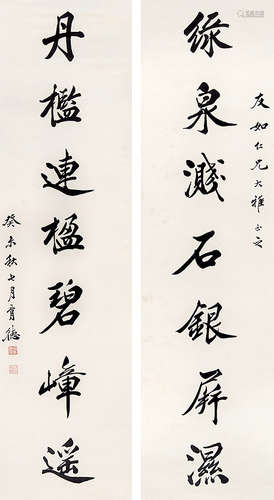 友如仁兄大雅正之
緑泉濺石銀屏濕
丹檻連楹碧嶂遥
癸未秋七月